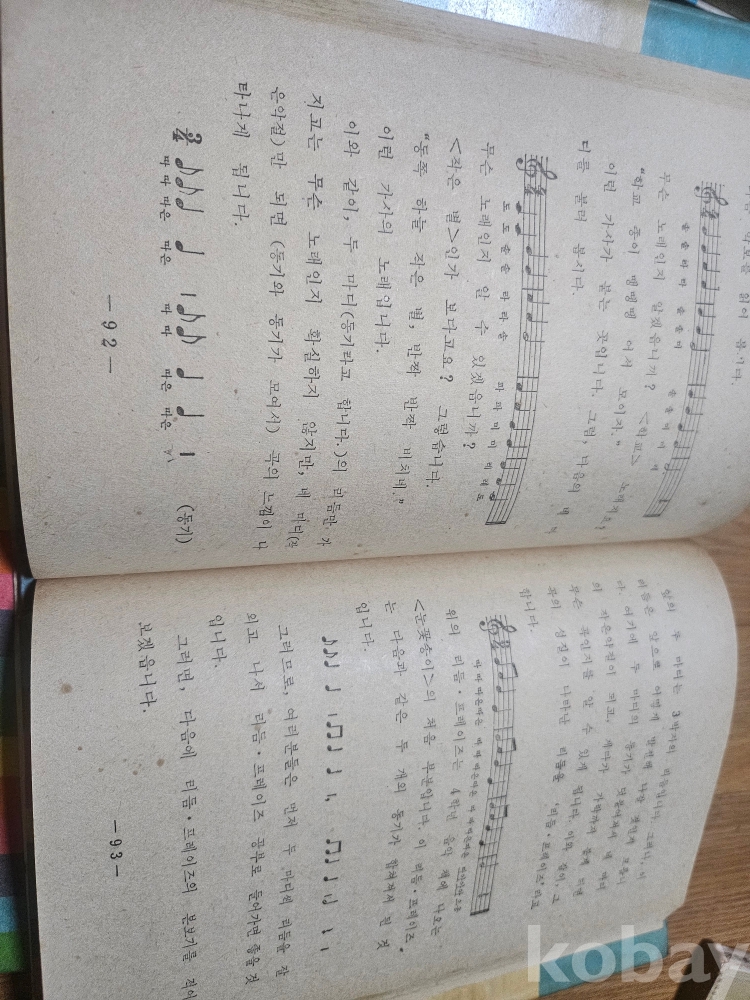 무슨 노래인지 알겠읍니까? <학교>
"학교 종이 땡땡땡 어서 모이자." 노래지요,
이런 가사가 붙는 곳입니다. 그럼, 다음의
디를 불러 봅시다.
도 도 솔 솔 라 라 솔 파 파 미 미 레 레 도
무슨 노래인지 알 수 있겠읍니까?
<작은 별>인가 보다고요? 그렇습니다.
"동쪽 하늘 작은 별, 반짝 반짝 비치네."
이런 가사의 노래입니다.
이와 같이, 두 마디(동기라고 합니다.)의 리듬만 가
지고는 무슨 노래인지 확실하지 않지만, 네 마디(작
은악절)만 되면 (동기와 동기가 모여서) 곡의 느낌이 나
타나게 됩니다.
(동기)
—92—
앞의 두 마디는 3박자의 리듬입니다. 그러나, 이
무슨 곡인지를 알 수 있게 됩니다. 이와 같이, 그
곡의 성질이 나타난 리듬을 '리듬·프레이즈'라고
합니다.
위의 리듬·프레이즈는 4학년 음악 책에 나오는
<눈꽃송이>의 처음 부분입니다. 이 리듬·프레이즈
는 다음과 같은 두 개의 동기가 합쳐져서 된 것
입니다.
그러므로, 여러분들은 먼저 두 마디의 리듬을 잘
외고 나서 리듬·프레이즈 공부로 들어가면 좋을 것
입니다.
그러면, 다음에 리듬·프레이즈의 본보기를 적어
보겠읍니다.
—93—
kobay